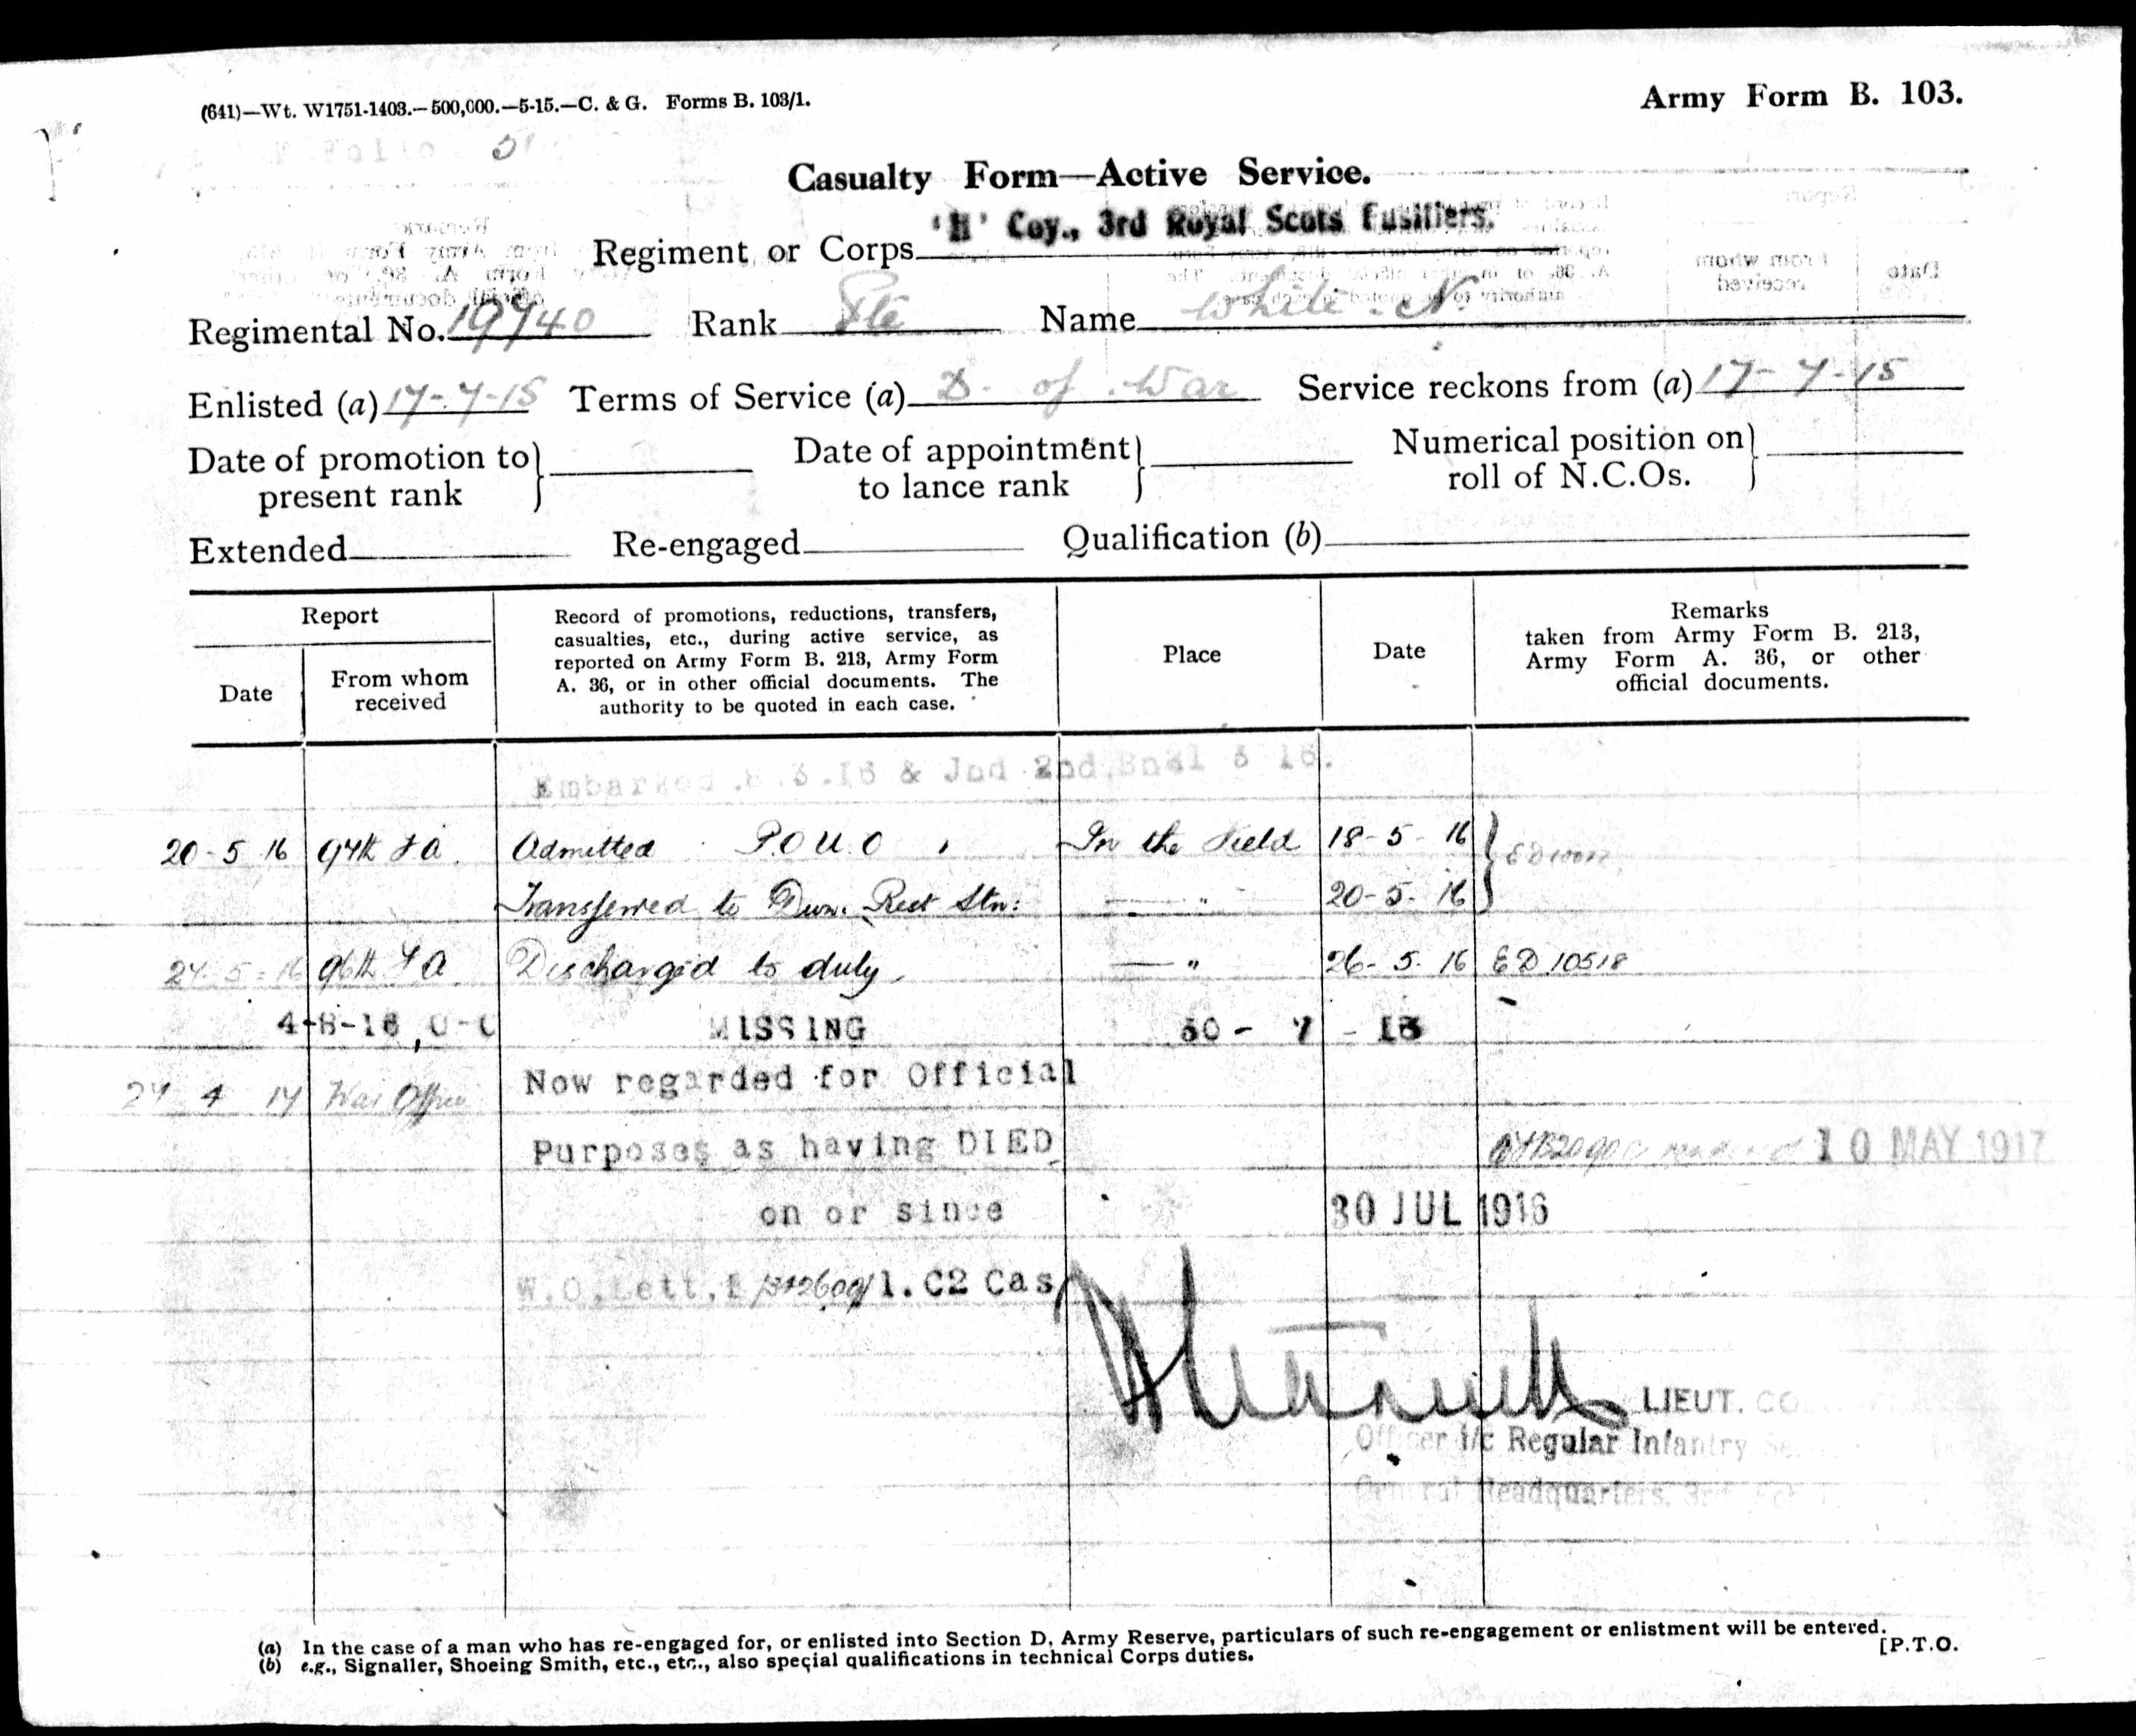 (641)—Wt. W1751-1403.—500,000.—5-15.—C. & G. Forms B. 103/1.
Army Form B. 103.
Casualty Form—Active Service.
Regiment or Corps 'H' Coy., 3rd Royal Scots Fusiliers.
Regimental No. 19740 Rank Pte Name White. N.
Enlisted (a) 17-7-15 Terms of Service (a) D. of War Service reckons from (a) 17-7-15
Date of promotion to present rank
Date of appointment to lance rank
Numerical position on roll of N.C.Os.
Extended Re-engaged Qualification (b)
Report
Date
From whom received
Record of promotions, reductions, transfers,
casualties, etc., during active service, as
reported on Army Form B. 213, Army Form
A. 36, or in other official documents. The
authority to be quoted in each case.
Place
Date
Remarks
taken from Army Form B. 213,
Army Form A. 36, or other
official documents.
Embarked 3.16 & Jnd 2nd Bn 3 16.
20-5 16 97th FA. Admitted P.O U.O In the Field 18-5-16
Transferred to Divn. Rest Stn: —— " 20-5-16
27-5-16 96th FA Discharged to duty —— " 26-5-16 ED 10518
4-8-16 MISSING 30-7-16
27 4 17 War Office Now regarded for Official
Purposes as having DIED 10 MAY 1917
on or since 30 JUL 1916
W.O. Lett, 1. C2 Cas
LIEUT. CO
Officer i/c Regular Infantry
General Headquarters, 3rd
(a) In the case of a man who has re-engaged for, or enlisted into Section D, Army Reserve, particulars of such re-engagement or enlistment will be entered.
(b) e.g., Signaller, Shoeing Smith, etc., etc., also special qualifications in technical Corps duties.
[P.T.O.